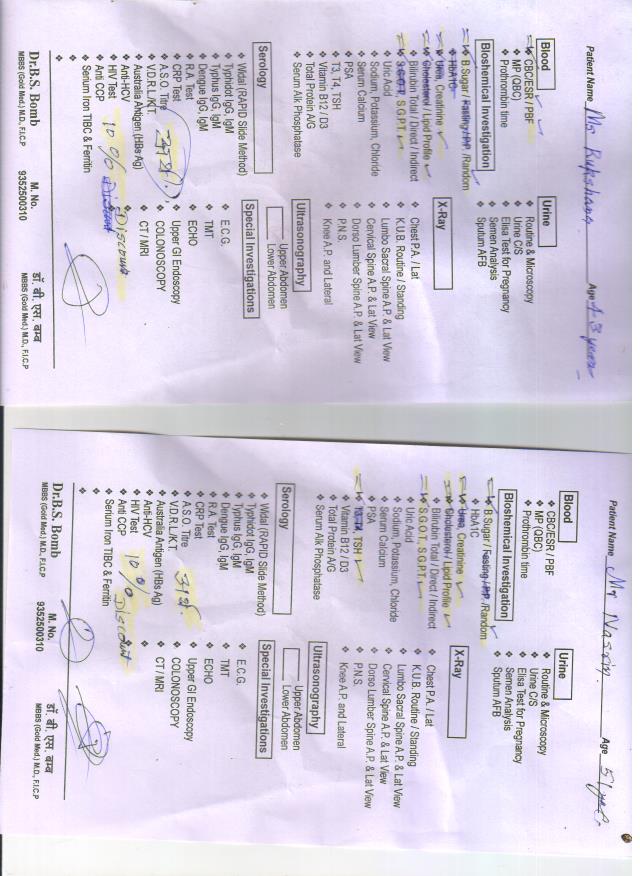 Patient Name Ms Rukshana Age 43 years
Blood
❖ CBC/ESR / PBF
❖ MP (QBC)
❖ Prothrombin time
Urine
❖ Routine & Microscopy
❖ Urine C/S
❖ Elisa Test for Pregnancy
❖ Semen Analysis
❖ Sputum AFB
Bioshemical Investigation
❖ B.Sugar / Fasting / P.P. /Random
❖ HbA1C
❖ Urea, Creatinine
❖ Cholesterol / Lipid Profile
❖ Bilirubin Total / Direct / Indirect
❖ S.G.O.T, S.G.P.T.
❖ Uric Acid
❖ Sodium, Potassium, Chloride
❖ Serum Calcium
❖ PSA
❖ T3, T4, TSH
❖ Vitamin, B12 / D3
❖ Total Protein A/G
❖ Serum Alk Phosphatase
X-Ray
❖ Chest P.A. / Lat
❖ K.U.B. Routine / Standing
❖ Lumbo Sacral Spine A.P. & Lat View
❖ Cervical Spine A.P. & Lat View
❖ Dorso Lumber Spine A.P. & Lat View
❖ P.N.S.
❖ Knee A.P. and Lateral
Ultrasonography
Upper Abdomen
Lower Abdomen
Serology
❖ Widal (RAPID Slide Method)
❖ Typhidot IgG, IgM
❖ Typhus IgG, IgM
❖ Dengue IgG, IgM
❖ R.A. Test
❖ CRP Test
❖ A.S.O. Titre
❖ V.D.R.L./K.T.
❖ Australia Antigen (HBs Ag)
❖ Anti-HCV
❖ HIV Test
❖ Anti CCP
❖ Serium Iron TIBC & Ferritin
Special Investigations
❖ E.C.G.
❖ TMT
❖ ECHO
❖ Upper GI Endoscopy
❖ COLONOSCOPY
❖ CT / MRI
10 % Discount
Discount
Dr.B.S. Bomb
MBBS (Gold Med.) M.D., F.I.C.P
M. No.
9352500310
डॉ. बी. एस. बम्ब
MBBS (Gold Med.) M.D., F.I.C.P
Patient Name Mr Nasrin Age 51 year
Blood
❖ CBC/ESR / PBF
❖ MP (QBC)
❖ Prothrombin time
Urine
❖ Routine & Microscopy
❖ Urine C/S
❖ Elisa Test for Pregnancy
❖ Semen Analysis
❖ Sputum AFB
Bioshemical Investigation
❖ B.Sugar / Fasting / P.P. /Random
❖ HbA1C
❖ Urea, Creatinine
❖ Cholesterol / Lipid Profile
❖ Bilirubin Total / Direct / Indirect
❖ S.G.O.T, S.G.P.T.
❖ Uric Acid
❖ Sodium, Potassium, Chloride
❖ Serum Calcium
❖ PSA
❖ T3, T4, TSH
❖ Vitamin B12 / D3
❖ Total Protein A/G
❖ Serum Alk Phosphatase
X-Ray
❖ Chest P.A. / Lat
❖ K.U.B. Routine / Standing
❖ Lumbo Sacral Spine A.P. & Lat View
❖ Cervical Spine A.P. & Lat View
❖ Dorso Lumber Spine A.P. & Lat View
❖ P.N.S.
❖ Knee A.P. and Lateral
Ultrasonography
Upper Abdomen
Lower Abdomen
Serology
❖ Widal (RAPID Slide Method)
❖ Typhidot IgG, IgM
❖ Typhus IgG, IgM
❖ Dengue IgG, IgM
❖ R.A. Test
❖ CRP Test
❖ A.S.O. Titre
❖ V.D.R.L./K.T.
❖ Australia Antigen (HBs Ag)
❖ Anti-HCV
❖ HIV Test
❖ Anti CCP
❖ Serium Iron TIBC & Ferritin
Special Investigations
❖ E.C.G.
❖ TMT
❖ ECHO
❖ Upper GI Endoscopy
❖ COLONOSCOPY
❖ CT / MRI
10 % Discount
Dr.B.S. Bomb
MBBS (Gold Med.) M.D., F.I.C.P
M. No.
9352500310
डॉ. बी. एस. बम्ब
MBBS (Gold Med.) M.D., F.I.C.P